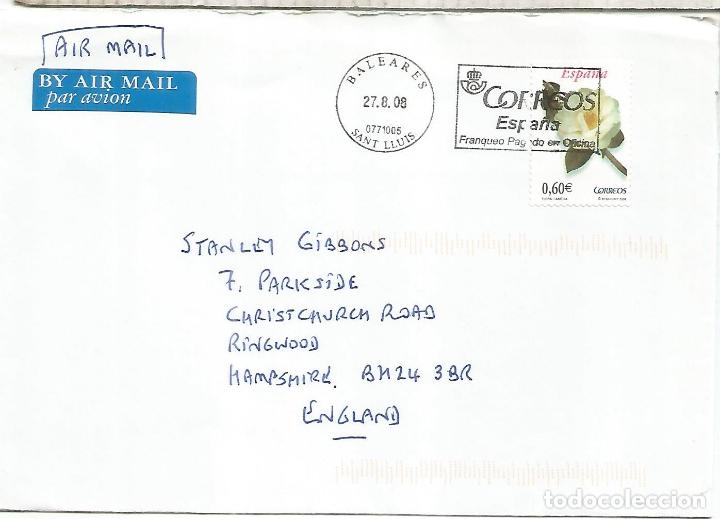 AIR MAIL
BY AIR MAIL
par avion
BALEARES
27.8.08
0771005
SANT LLUIS
CORREOS
España
Franqueo Pagado en Oficina
España
0,60€
CORREOS
STANLEY GIBBONS
7, PARKSIDE
CHRISTCHURCH ROAD
RINGWOOD
HAMPSHIRE. BH24 3BR
ENGLAND
todocoleccion